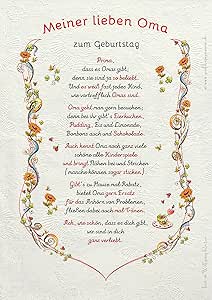 Meiner lieben Oma
zum Geburtstag
Prima,
dass es Omas gibt,
denn sie sind ja so beliebt.
Und es weiß fast jedes Kind,
wie vortrefflich Omas sind.
Oma geht man gern besuchen;
denn bei ihr gibt's Eierkuchen,
Pudding, Eis und Limonade,
Bonbons auch und Schokolade.
Auch kennt Oma noch ganz viele
schöne alte Kinderspiele
und bringt Nähen bei und Stricken
(manche können sogar sticken)
Gibt's zu Hause mal Rabatz,
bietet Oma gern Ersatz
für das Anhören von Problemen,
fließen dabei auch mal Tränen.
Ach, wie schön, dass es dich gibt,
wir sind in dich
ganz verliebt.